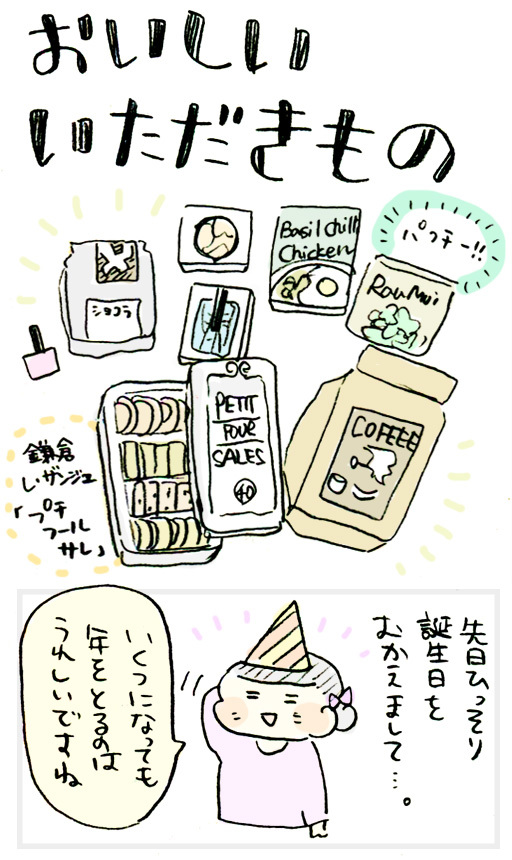 おいしい
いただきもの
パクチー!!
Basil chilli
Chicken
Rau Mui
ショコラ
PETIT
FOUR
SALES
40
COFEEE
鎌倉
レ・ザンジュ
「プチ
フール
サレ」
先日ひっそり
誕生日を
むかえまして…。
いくつになっても
年をとるのは
うれしいですね